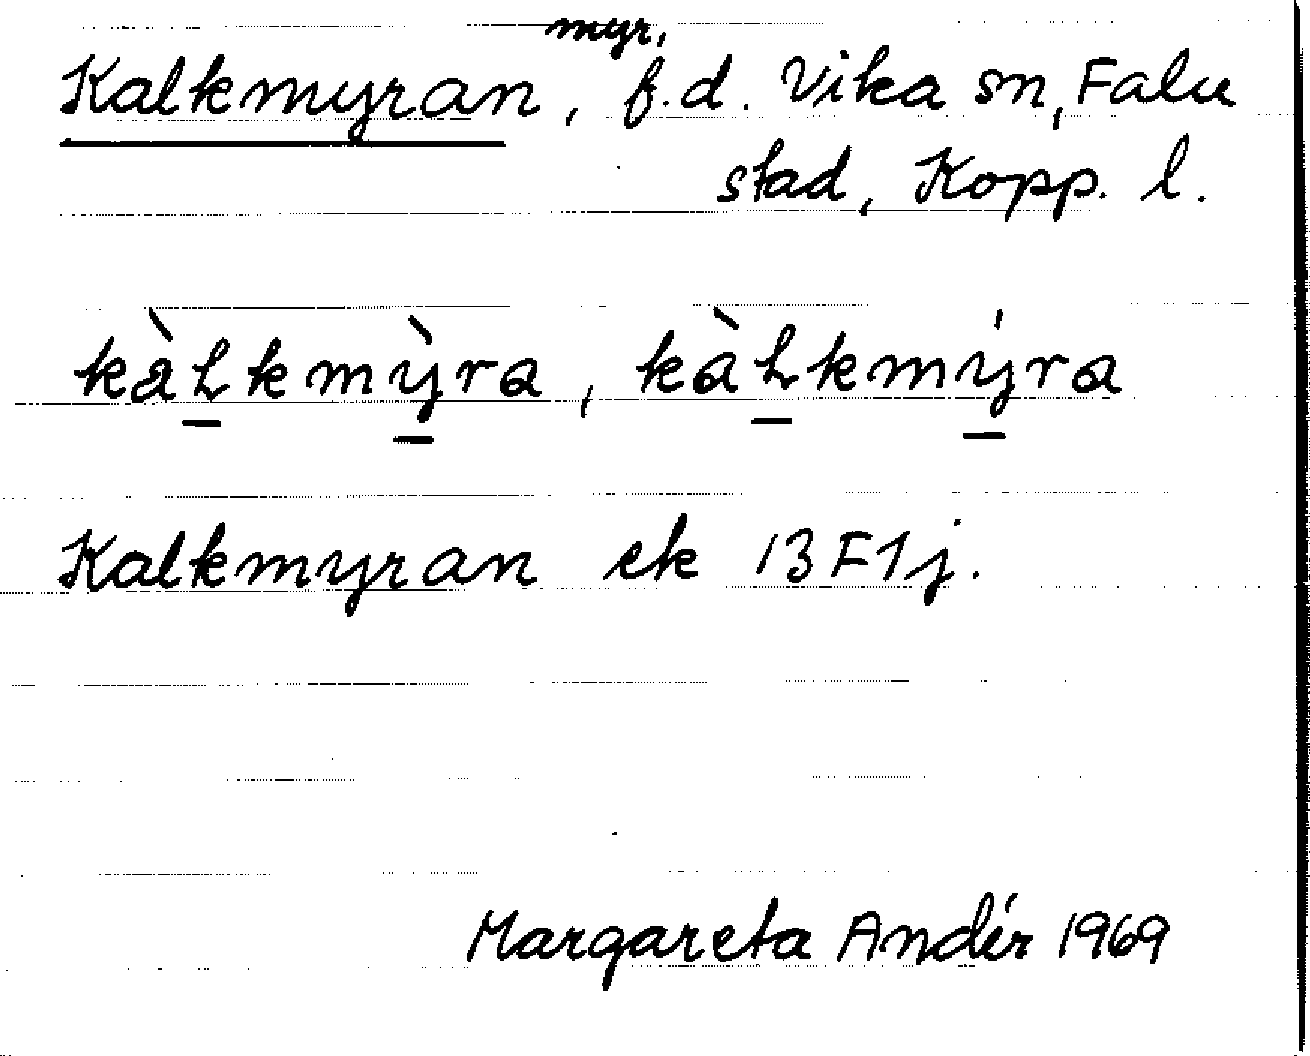 Kalkmyran, myr, f.d. Vika sn, Falu
stad, Kopp. l.
kàL̲kmỳ̲ra, kàL̲kmý̲ra
Kalkmyran ek 13F1j.
Margareta Andér 1969